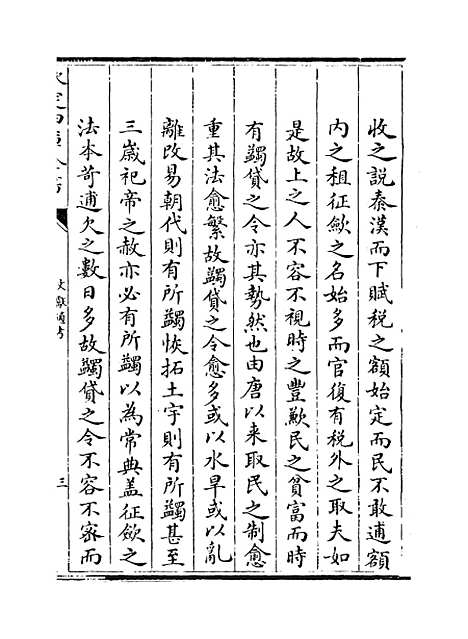 收之説秦漢而下賦税之額始定而民不敢逋額
内之租征歛之名始多而官復有税外之取夫如
是故上之人不容不視時之豐歉民之貧富而時
有蠲貸之令亦其勢然也由唐以来取民之制愈
重其法愈繁故蠲貸之令愈多或以水旱或以亂
離改易朝代則有所蠲恢拓土宇則有所蠲甚至
三嵗祀帝之赦亦必有所蠲以為常典盖征歛之
法本苛逋欠之數日多故蠲貸之令不容不宻而
欽定四庫全書
文獻通考
三